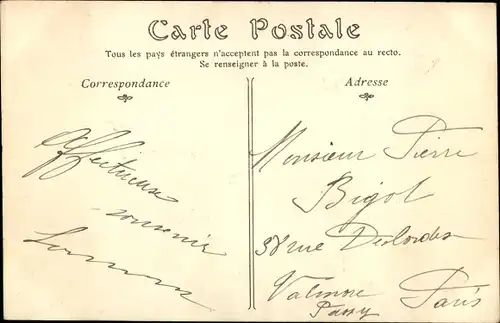 Carte Postale
Tous les pays étrangers n'acceptent pas la correspondance au recto.
Se renseigner à la poste.
Correspondance
Adresse
Affectueux
souvenir
Monsieur Pierre
Bigot
38 rue Desbordes
Valmore
Passy Paris